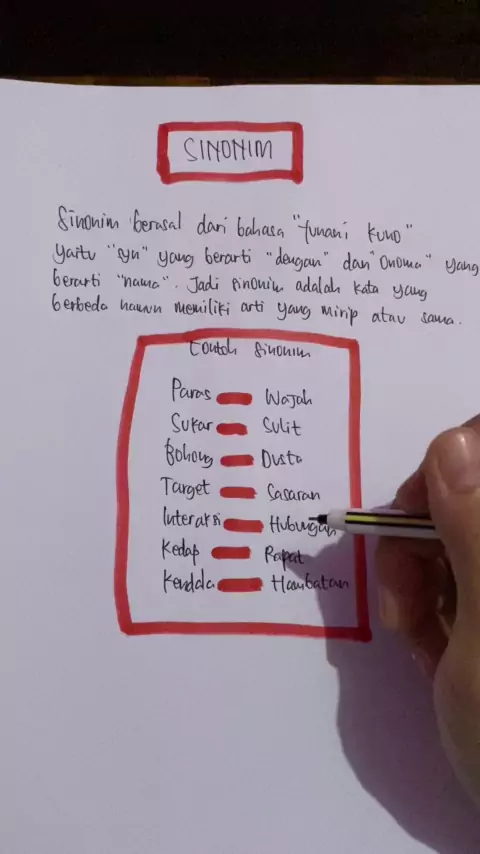 SINONIM
Sinonim berasal dari bahasa "Yunani Kuno"
yaitu "syn" yang berarti "dengan" dan "Onoma" yang
berarti "nama". Jadi sinonim adalah kata yang
berbeda namun memiliki arti yang mirip atau sama.
Contoh Sinonim
Paras Wajah
Sukar Sulit
Bohong Dusta
Target Sasaran
Interaksi Hubungan
Kedap Rapat
Kendala Hambatan